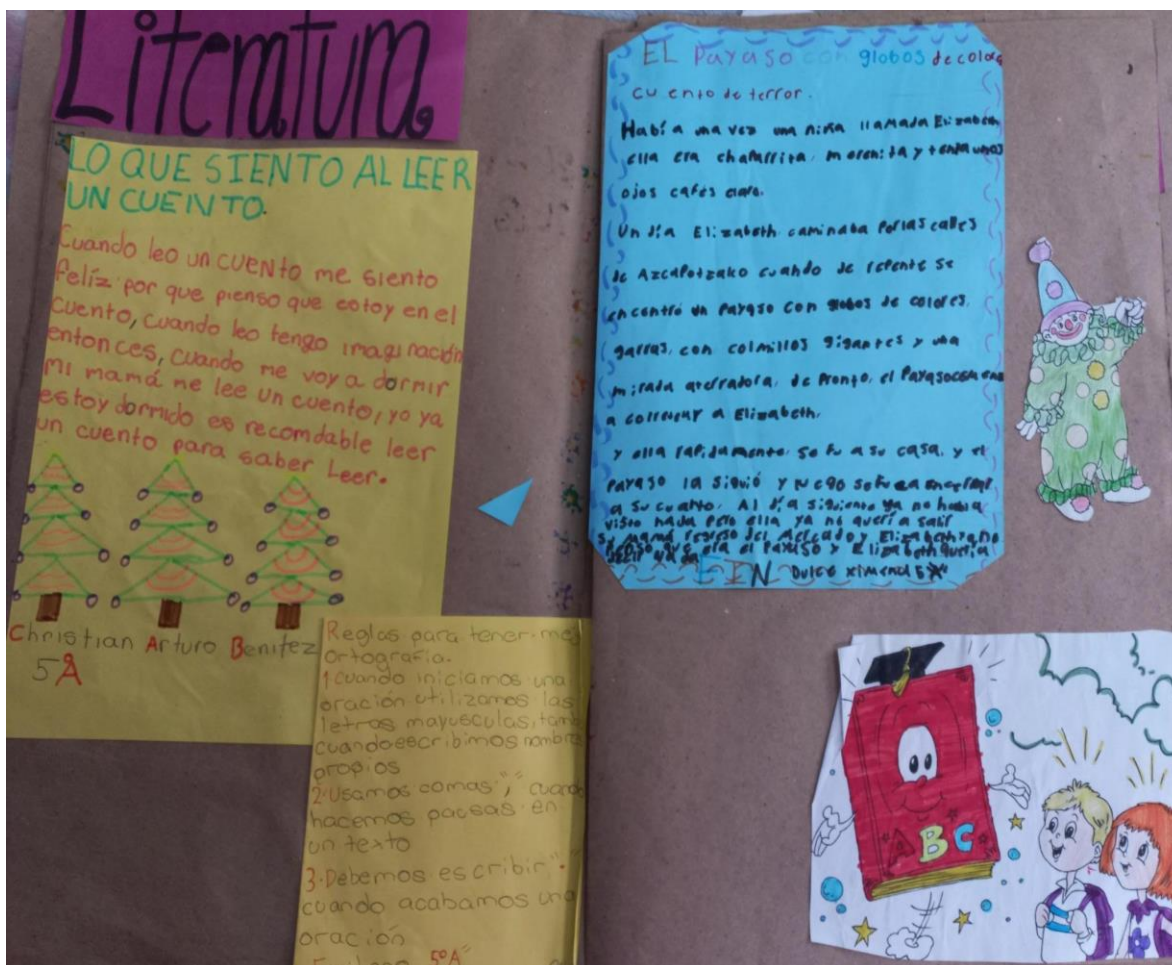 Literatura
LO QUE SIENTO AL LEER
UN CUENTO.
Cuando leo un CUENTO me siento
feliz por que pienso que estoy en el
cuento, cuando leo tengo imaginación
entonces, cuando me voy a dormir
mi mamá me lee un cuento, yo ya
estoy dormido es recomdable leer
un cuento para saber Leer.
Christian Arturo Benitez
5A
Reglas para tener
ortografía.
1 cuando iniciamos una
oración utilizamos las
letras mayusculas, tamb
cuando escribimos nombres
propios
2. Usamos comas "," cuando
hacemos pausas en
un texto
3. Debemos escribir "."
cuando acabamos una
oración
5ºA
EL Payaso con globos de colores
cuento de terror.
Había una vez una niña llamada Elizabeth
ella era chaparrita, morenita y tenia unos
ojos cafés claro.
Un día Elizabeth caminaba por las calles
de Azcapotzako cuando de repente se
encontró un Payaso con globos de colores,
garras, con colmillos gigantes y una
mirada aterradora, de pronto, el Payaso
a Elizabeth.
y ella rapidamente se fu a su casa, y el
Payaso la siguió y
a su cuarto. Al día siguiente ya no habia
visto nada pero ella ya no quería salir
su mamá regreso del Mercado y Elizabeth
que era el Payaso y Elizabeth queria
FIN Dulce ximena 5
ABC